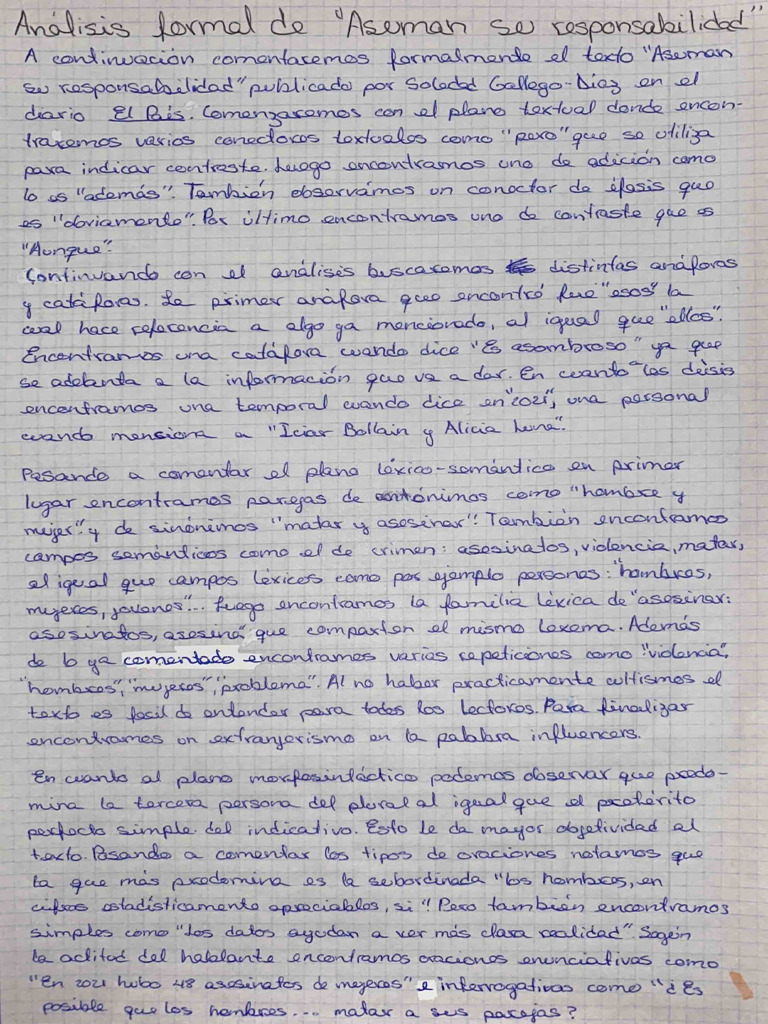 Análisis formal de "Aseman su responsabilidad"
A continuación comentaremos formalmente el texto "Aseman
su responsabilidad" publicado por Soledad Gallego-Díaz en el
diario El País. Comenzaremos con el plano textual donde encon-
traremos varios conectores textuales como "pero" que se utiliza
para indicar contraste. Luego encontramos uno de adición como
lo es "además". También observámos un conector de éfasis que
es "obviamente". Por último encontramos uno de contraste que es
"Aunque".
Continuando con el análisis buscaremos distintas anáforas
y catáforas. La primer anáfora que encontré fue "esos" la
cual hace referencia a algo ya mencionado, al igual que "ellos".
Encontramos una catáfora cuando dice "Es asombroso" ya que
se adelanta a la información que va a dar. En cuanto a las deisis
encontramos una temporal cuando dice en "2021", una personal
cuando menciona a "Iciar Bollain y Alicia Luna".
Pasando a comentar el plano léxico-semántico en primer
lugar encontramos parejas de antónimos como "hombre y
mujer" y de sinónimos "matar y asesinar". También encontramos
campos semánticos como el de crimen: asesinatos, violencia, matar,
al igual que campos léxicos como por ejemplo personas: "hombres,
mujeres, jovenes"... Luego encontramos la familia léxica de "asesinar:
asesinatos, asesina" que comparten el mismo lexema. Además
de lo ya comentado encontramos varias repeticiones como "violencia",
"hombres", "mujeres", "problema". Al no haber practicamente cultismos el
texto es facil de entender para todos los lectores. Para finalizar
encontramos un extranjerismo en la palabra influencers.
En cuanto al plano morfosintáctico podemos observar que predo-
mina la tercera persona del plural al igual que el pretérito
perfecto simple del indicativo. Esto le da mayor objetividad al
texto. Pasando a comentar los tipos de oraciones notamos que
la que más predomina es la subordinada "los hombres, en
cifras estadísticamente apreciables, si". Pero también encontramos
simples como "Los datos ayudan a ver más clara realidad". Según
la actitud del hablante encontramos oraciones enunciativas como
"En 2021 hubo 48 asesinatos de mujeres" e interrogativas como "¿Es
posible que los hombres... matar a sus parejas?